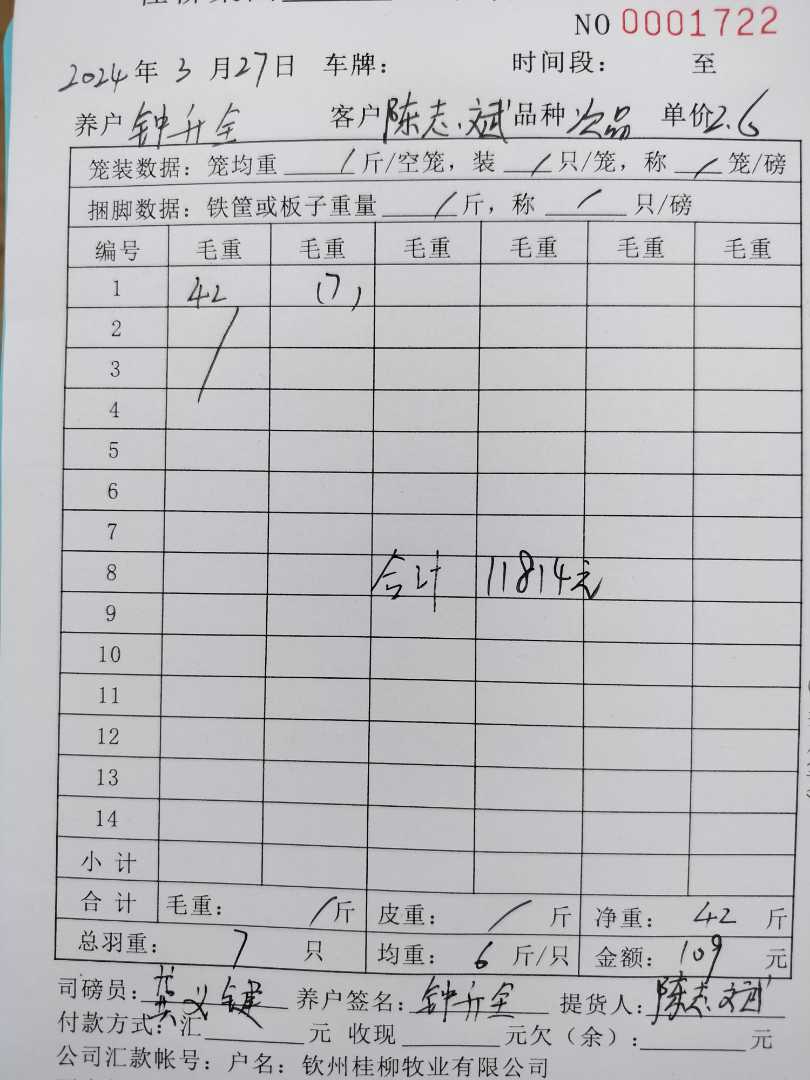 NO 0001722
2024年 3 月27日 车牌： 时间段： 至
养户 钟升全 客户 陈志斌 品种 次品 单价2.6
笼装数据：笼均重 / 斤/空笼，装 / 只/笼，称 / 笼/磅
捆脚数据：铁筐或板子重量 / 斤，称 / 只/磅
编号 毛重 毛重 毛重 毛重 毛重 毛重
1 42 (7)
2
3
4
5
6
7
8 合计 11814元
9
10
11
12
13
14
小 计
合 计 毛重： / 斤 皮重： / 斤 净重： 42 斤
总羽重： 7 只 均重： 6 斤/只 金额： 109 元
司磅员： 养户签名：钟升全 提货人：陈志斌
付款方式：汇 元 收现 元欠（余）： 元
公司汇款帐号：户名：钦州桂柳牧业有限公司